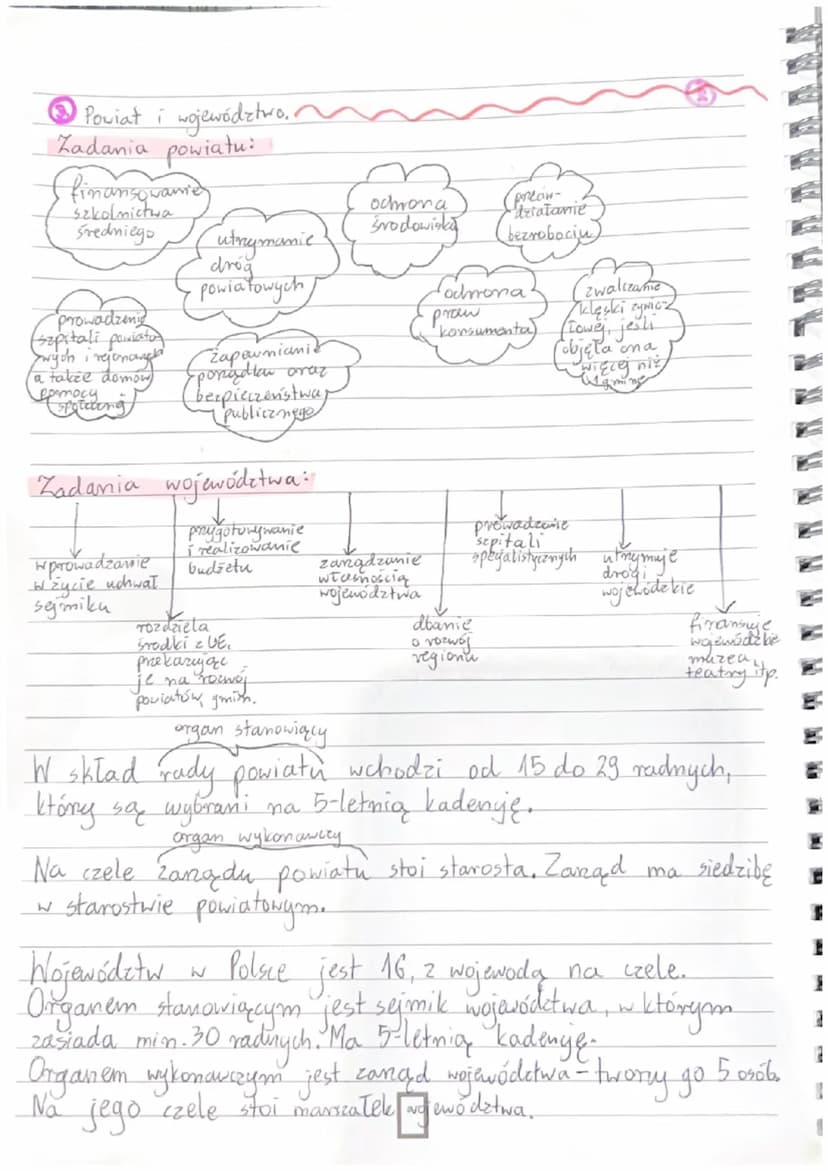 3 Powiat i województwo. 2
Zadania powiatu:
finansowanie
szkolnictwa
średniego
utrzymanie
dróg
powiatowych
ochrona
środowiska
przeciw-
działanie
bezrobociu
prowadzenie
szpitali powiato-
wych i rejonowych
a także domów
pomocy
społecznej
zapewnianie
porządku oraz
bezpieczeństwa
publicznego
ochrona
praw
konsumenta
zwalczanie
klęski żywio-
łowej, jeśli
objęła ona
więcej niż
1 gminę
Zadania województwa:
wprowadzanie
w życie uchwał
sejmiku
rozdziela
środki z UE,
przekazując
je na rozwój
powiatów, gmin.
przygotowywanie
i realizowanie
budżetu
zarządzanie
własnością
województwa
dbanie
o rozwój
regionu
prowadzenie
szpitali
specjalistycznych
utrzymuje
drogi
wojewódzkie
finansuje
wojewódzkie
muzea,
teatry itp.
organ stanowiący
W skład rady powiatu wchodzi od 15 do 29 radnych,
którzy są wybrani na 5-letnią kadencję.
organ wykonawczy
Na czele zarządu powiatu stoi starosta. Zarząd ma siedzibę
w starostwie powiatowym.
Województw w Polsce jest 16, z wojewodą na czele.
Organem stanowiącym jest sejmik województwa, w którym
zasiada min. 30 radnych. Ma 5-letnią kadencję.
Organem wykonawczym jest zarząd województwa - tworzy go 5 osób.
Na jego czele stoi marszałek województwa.